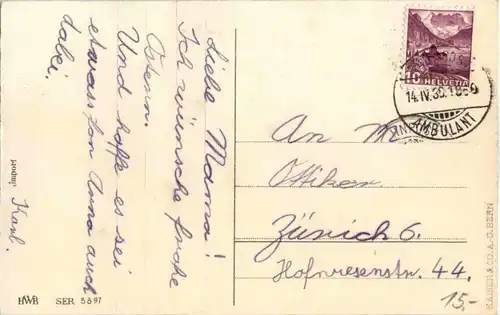 Liebe Mama!
Ich wünsche frohe
Ostern.
Und hoffe es sei
etwas von Anna auch
dabei.
Karl.
Import
HWB SER 5897
10 HELVETIA
14.IV.36.18
AMBULANT
An M
Ottiker
Zürich 6.
Hofwiesenstr. 44.
15,-
KAISER & CO. A.-G. BERN